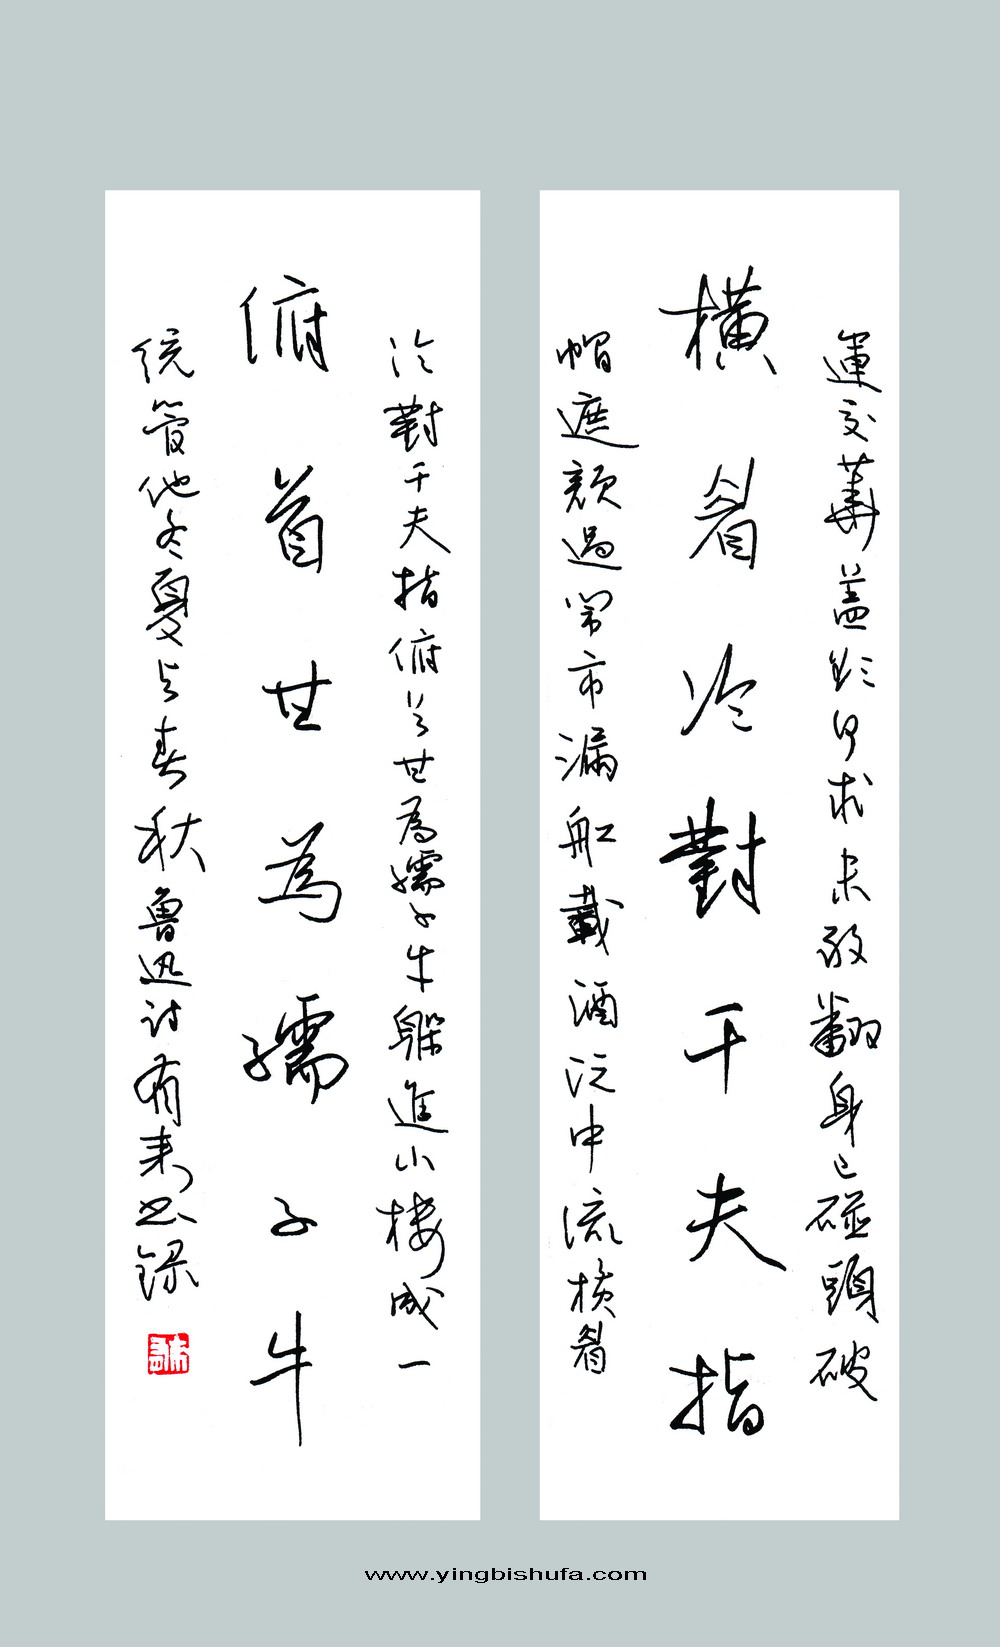 運交華蓋欲何求未敢翻身已碰頭破
横眉冷對千夫指
帽遮颜過闹市漏舡載酒泛中流横眉
冷對千夫指俯首甘為孺子牛躲進小楼成一
俯首甘為孺子牛
统管他冬夏与春秋魯迅诗有来书録
www.yingbishufa.com